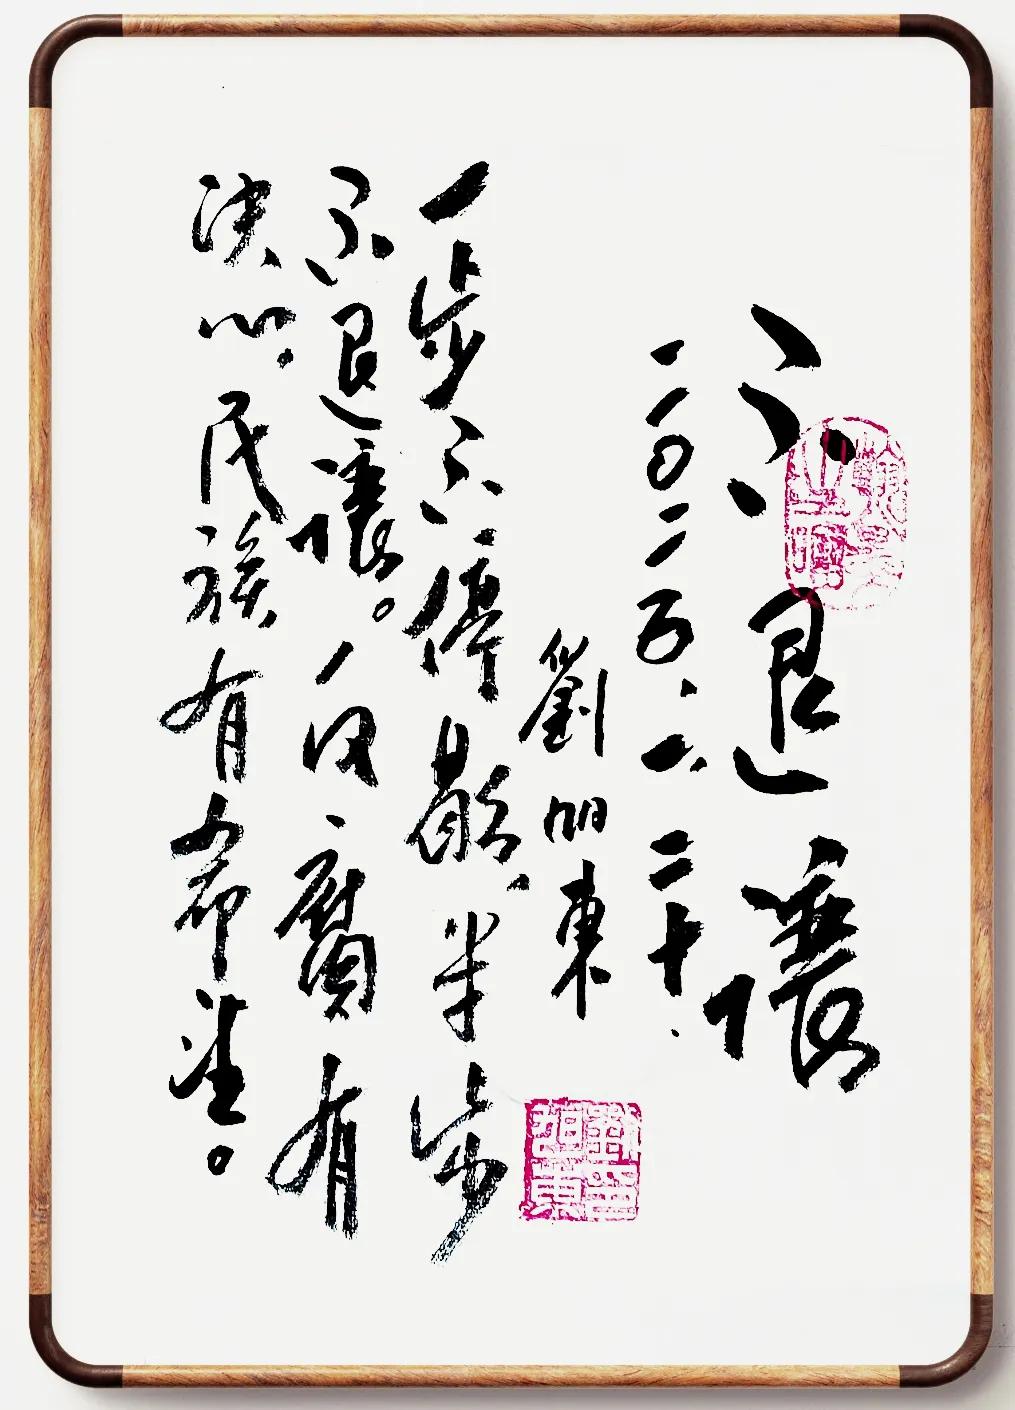 不退讓
二〇二五.六.二十.
劉東
一步不停歇,半步
不退讓。反腐有
決心,民族有希望。